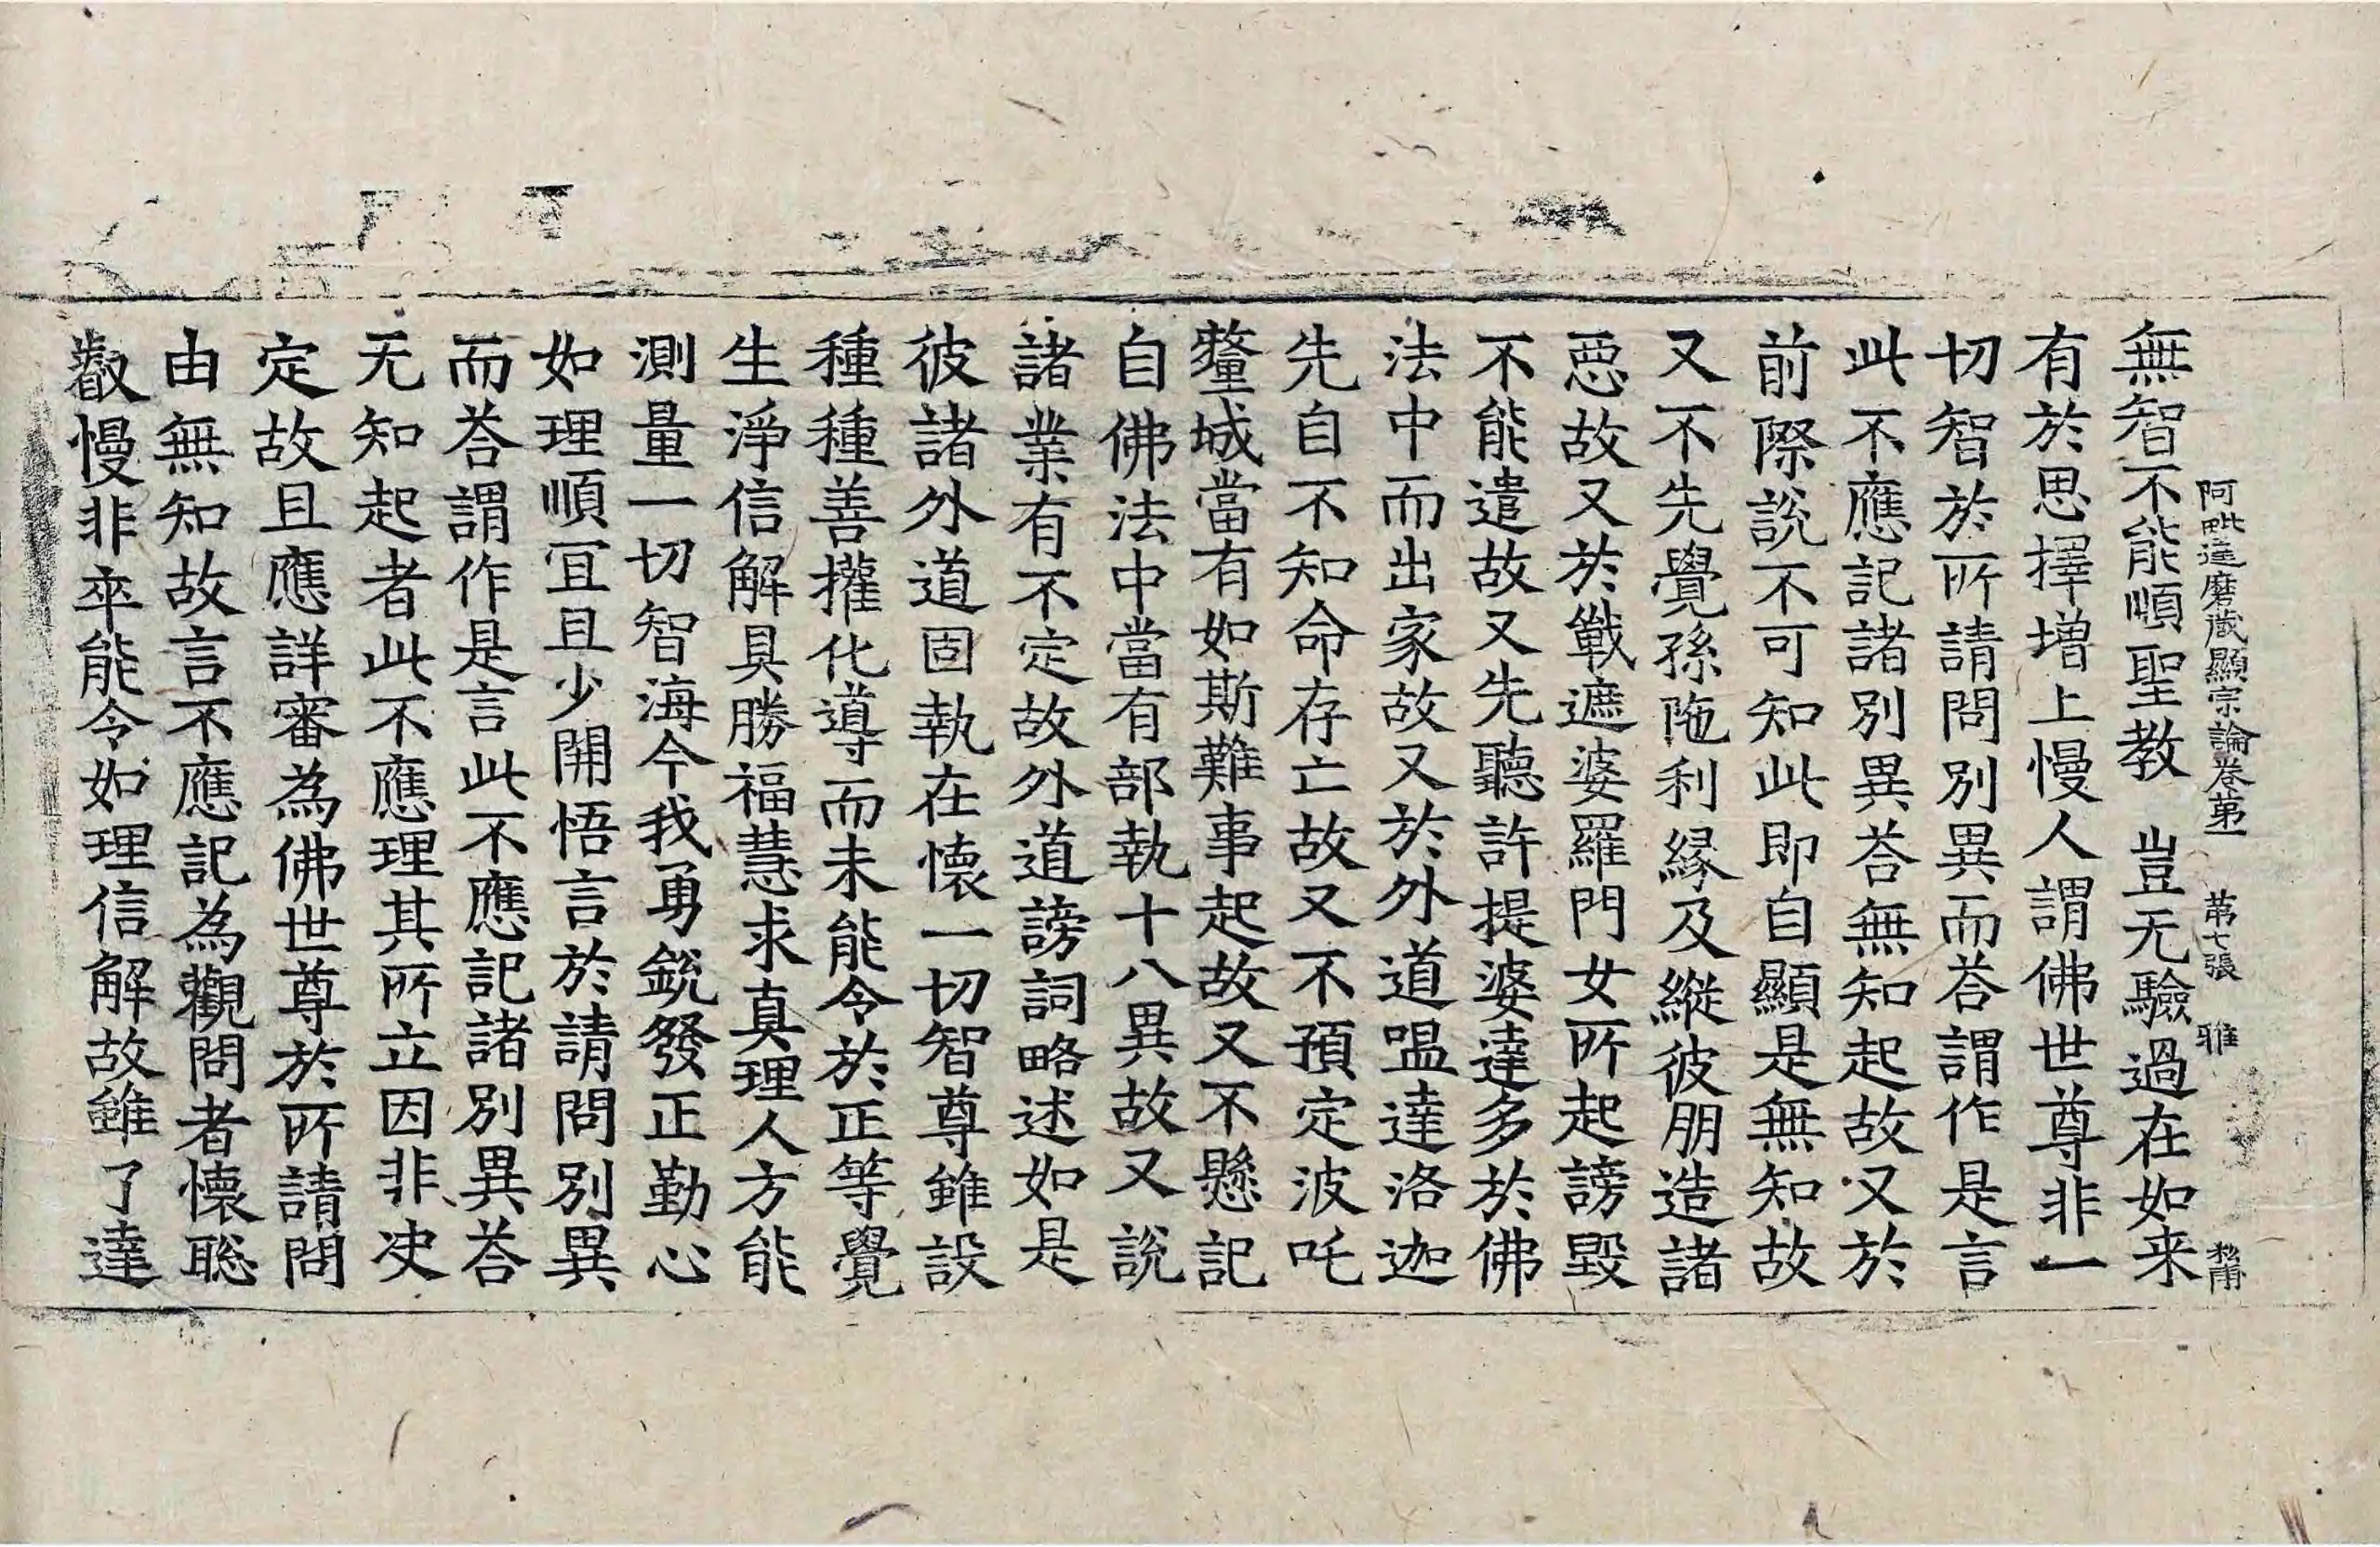 阿毗達磨蔵顯宗論卷第一　第七張　雅
無智不能順聖教　豈无驗過在如来
有於思擇增上慢人謂佛世尊非一
切智於所請問別異而荅謂作是言
此不應記諸別異荅無知起故又於
前際說不可知此即自顯是無知故
又不先覺孫陁利縁及縱彼朋造諸
惡故又於戰遮婆羅門女所起謗毀
不能遣故又先聽許提婆達多於佛
法中而出家故又於外道嗢達洛迦
先自不知命存亡故又不預定波吒
釐城當有如斯難事起故又不懸記
自佛法中當有部執十八異故又說
諸業有不定故外道謗詞略述如是
彼諸外道固執在懷一切智尊雖設
種種善攉化導而未能令於正等覺
生淨信解具勝福慧求真理人方能
測量一切智海今我勇銳發正勤心
如理順冝且少開悟言於請問別異
而荅謂作是言此不應記諸別異荅
无知起者此不應理其所立因非决
定故且應詳審為佛世尊於所請問
由無知故言不應記為觀問者懷聡
叡慢非卒能令如理信解故雖了達